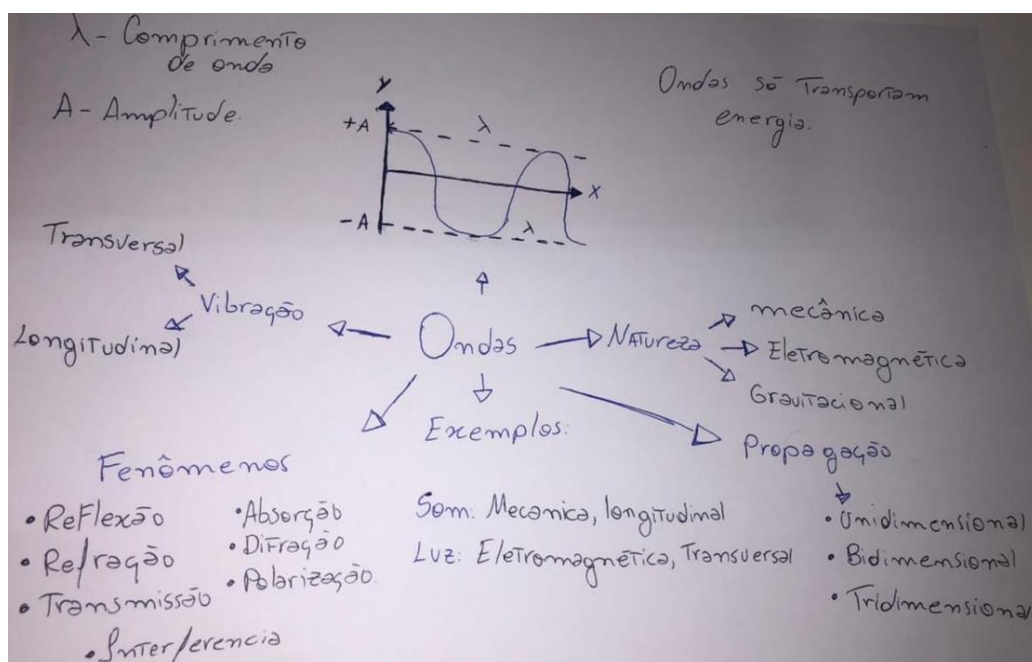 λ - Comprimento
de onda
A - Amplitude.
Ondas só Transportam
energia.
y
+A
λ
x
-A
λ
Transversal
Vibração
Longitudinal
Ondas
Natureza
mecânica
Eletromagnética
Gravitacional
Exemplos:
Propagação
Fenômenos
• Reflexão
• Refração
• Transmissão
• Interferencia
• Absorção
• Difração
• Polarização.
Som: Mecanica, longitudinal
Luz: Eletromagnética, Transversal
• Unidimensional
• Bidimensional
• Tridimensional